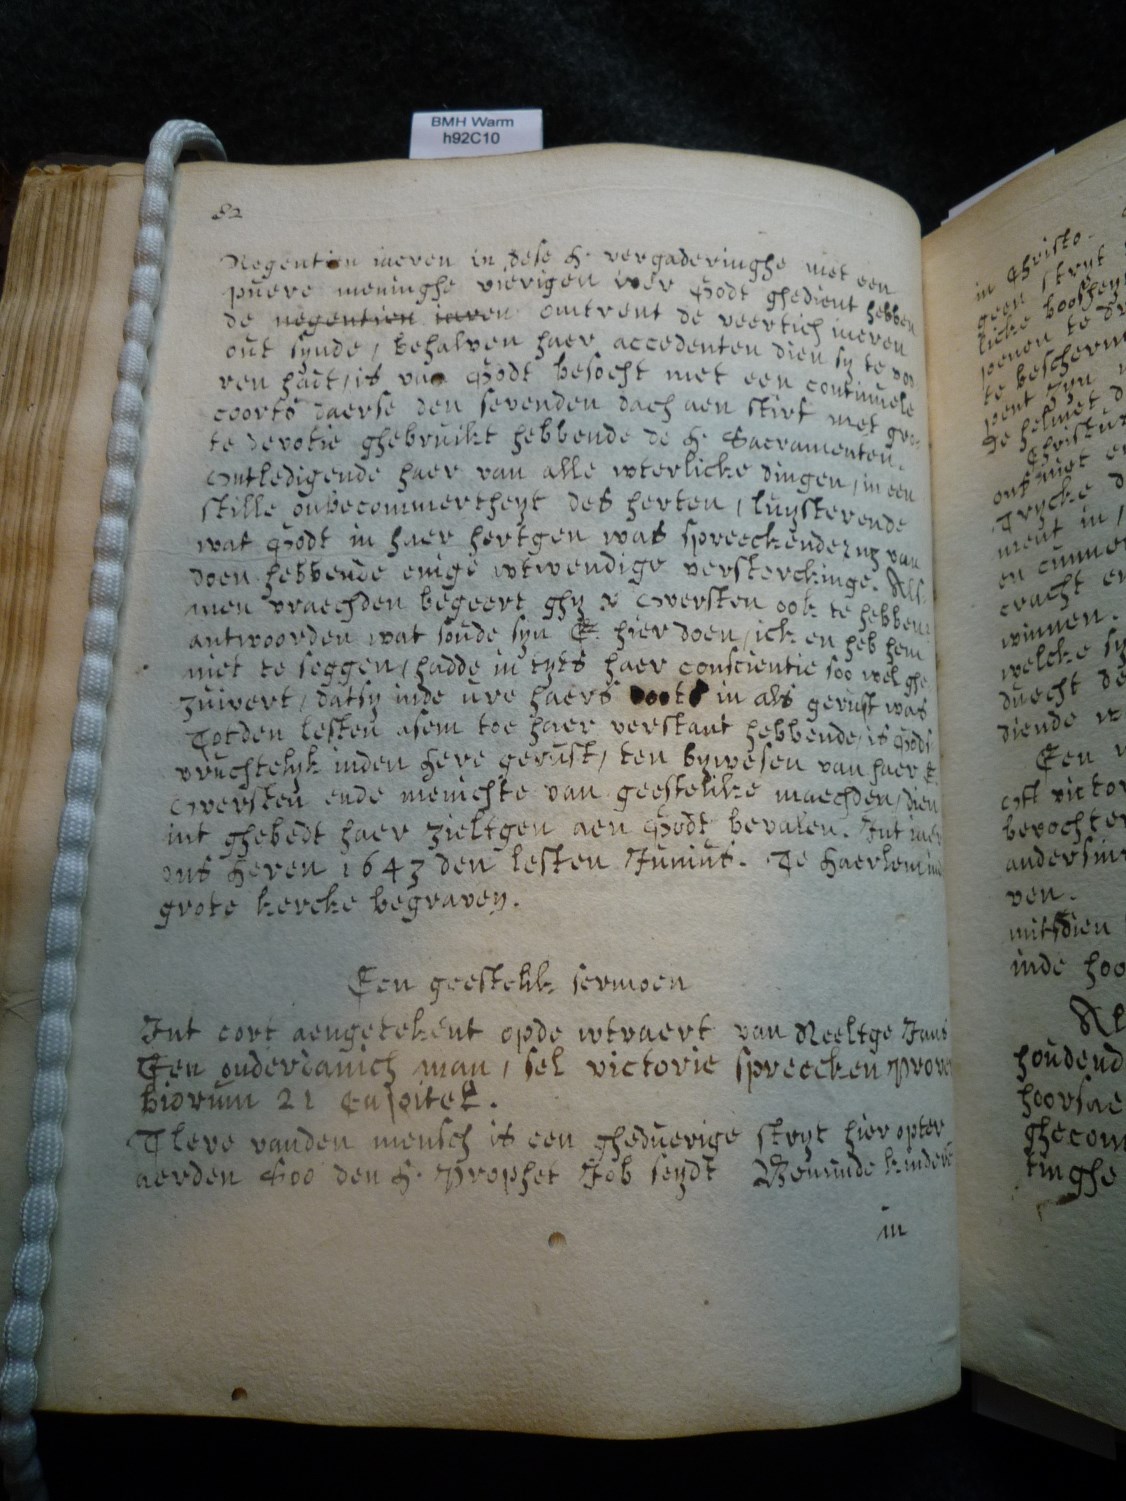 BMH Warm
h92C10
82
Negentien iaeren in dese H. vergaderinghe met een
puere meninghe vierigen iver Godt ghedient hebben
de negentien iaren omtrent de veertich iaeren
out synde, behalven haer accedenten dien sy te vo
ren hadt, is van Godt besocht met een continuele
coorts daerse den sevenden dach aen stirf met gro
te devotie ghebruikt hebbende de H. Sacramenten.
Ontledigende haer van alle wterlicke dingen, in een
stille onbecommertheyt des herten, luysterende
wat Godt in haer hertgen was spreeckende van
doen hebbende enige wtwendige versterckinge. Als
men vraechden begeert ghy Oversten ook te hebben
antwoorden wat soude syn E. hier doen, ick en heb hem
niet te seggen, hadde in tyts haer conscientie soo wel ghe
zuivert, datsy inde ure haers doots in als gerust was
Totden lesten asem toe haer verstant hebbende, is Gods
vruchtelyk inden Here gerust, ten bywesen van haer E.
Oversten ende menichte van geestelike maechden, dien
int ghebedt haer zieltgen aen Godt bevalen. Int iaer
ons Heren 1643 den lesten Junius. Te Haerlem in
grote kercke begraven.
Een geestelik sermoen
Int cort aengetekent opde wtvaert van Neeltge Jans
Een onderdanich man, sel victorie spreecken Prover
biorum 21 Capitel.
Tleven vanden mensch is een gheduerige stryt hier opter
aerden Soo den H. Prophet Job seydt Beminde kindere
in
in Christo.
geen stryt
licke boosheyt
te bescherm
de helmet d
Christus
cracht en
winnen.
welcke sy
duecht de
diende
Een
victor
bevochten
andersins
ven.
mitsdien
inde hoo
Al
houdend
hoorsae
ghecom
tinghe